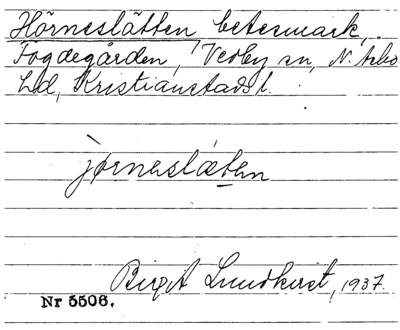 Hörneslätten betesmark,
Fogdegården, Vedby sn, N. Åsbo
hd, Kristianstads l.
jørneslæten
Birgit Lundkvist, 1937.
Nr 5506.